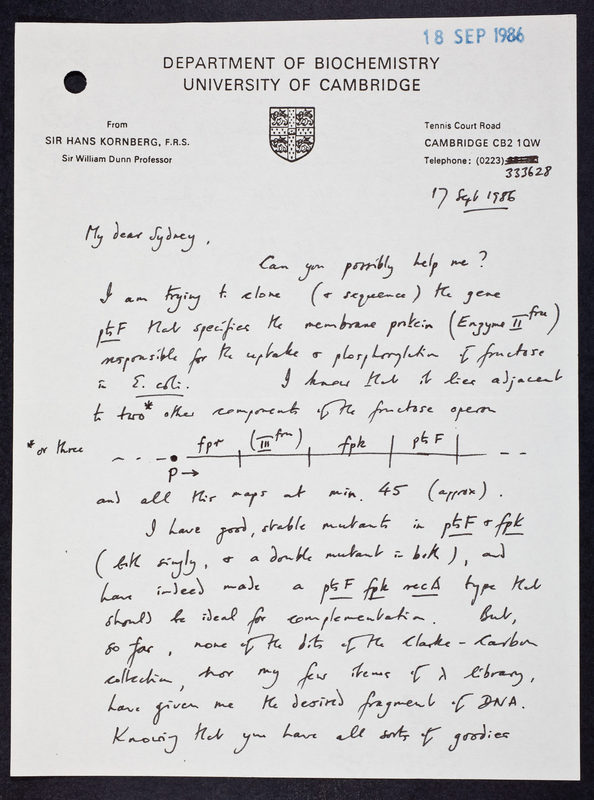 18 SEP 1986
DEPARTMENT OF BIOCHEMISTRY
UNIVERSITY OF CAMBRIDGE
From
SIR HANS KORNBERG, F.R.S.
Sir William Dunn Professor
Tennis Court Road
CAMBRIDGE CB2 1QW
Telephone: (0223)
333628
17 Sept 1986
My dear Sydney,
Can you possibly help me?
I am trying to clone (& sequence) the gene
ptsF that specifies the membrane protein (Enzyme II fru)
responsible for the uptake & phosphorylation of fructose
in E. coli. I know that it lies adjacent
to two* other components of the fructose operon
* or three
fpr (III fru) fpk ptsF
P →
and all this maps at min. 45 (approx).
I have good, stable mutants in ptsF & fpk
(both singly, & a double mutant in both), and
have indeed made a ptsF fpk recA type that
should be ideal for complementation. But,
so far, none of the bits of the Clarke-Carbon
collection, nor my few items of λ library,
have given me the desired fragment of DNA.
Knowing that you have all sorts of goodies